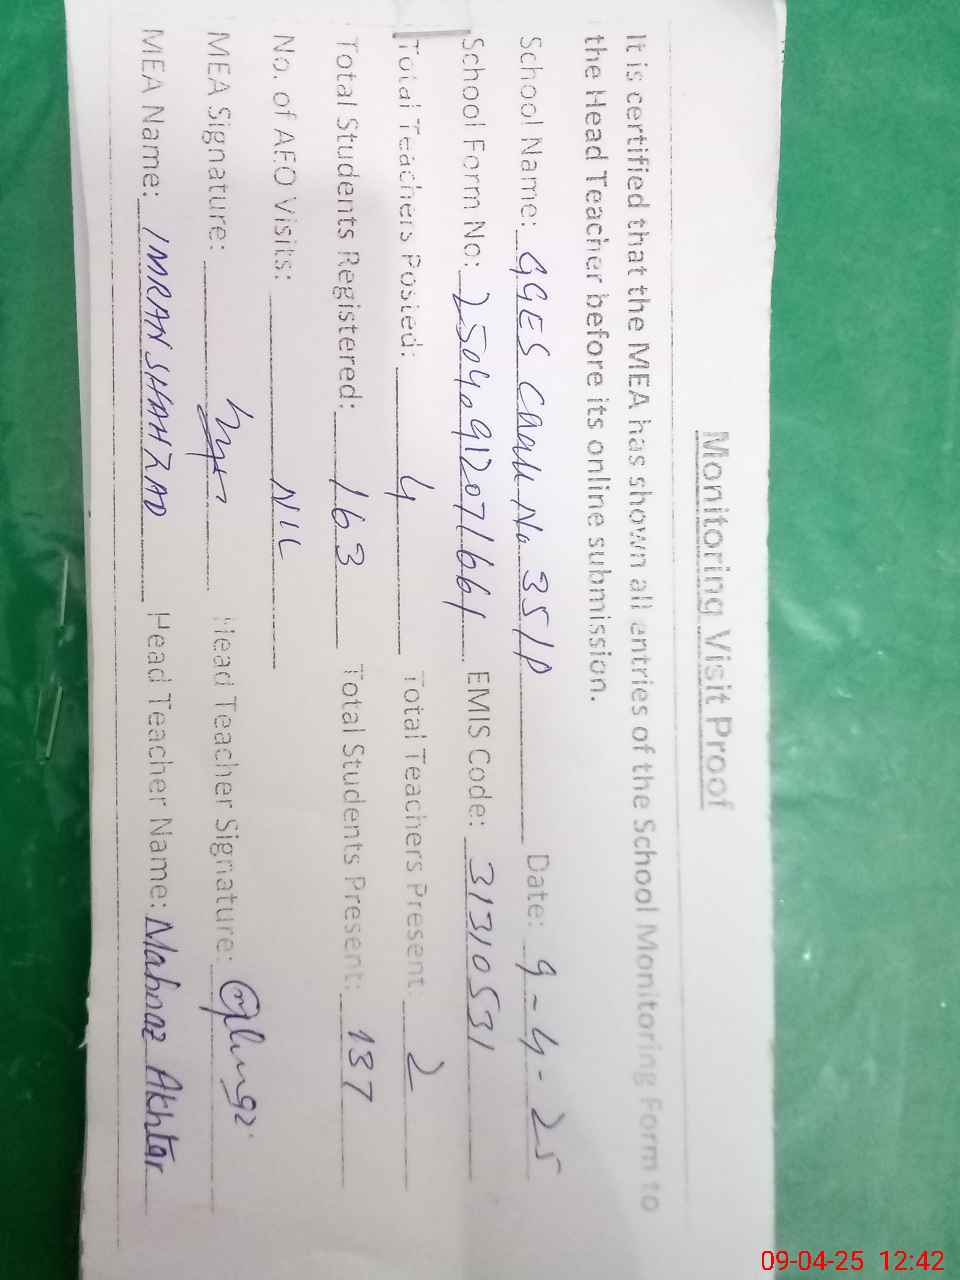 Monitoring Visit Proof
It is certified that the MEA has shown all entries of the School Monitoring Form to
the Head Teacher before its online submission.
School Name: GGES Chak No 35/P Date: 9-4-25
School Form No: 25040912071661 EMIS Code: 31310531
Total Teachers Posted: 4 Total Teachers Present: 2
Total Students Registered: 163 Total Students Present: 137
No. of AEO Visits: NIL
MEA Signature: Head Teacher Signature:
MEA Name: IMRAN SHAHZAD Head Teacher Name: Mahnaz Akhtar
09-04-25 12:42